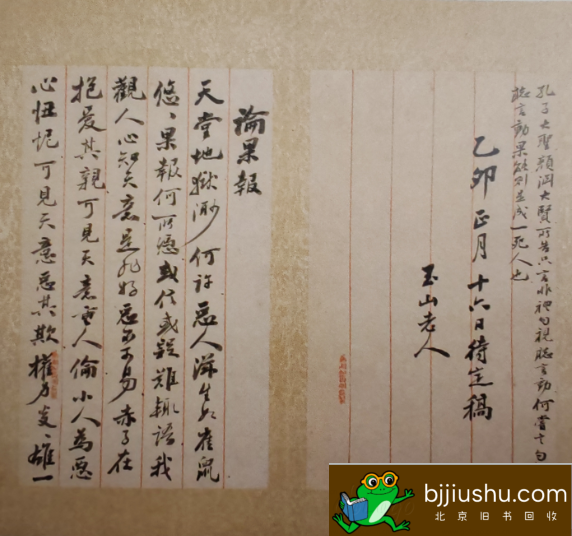 孔子大聖顏淵大賢所告只言非禮勿視聽言動何嘗十句
聽言動果能則立成一死人也
乙卯正月十六日待定稿
玉山老人
論果報
天堂地獄渺何許惡人滿生如雀鼠
悠、果報何所憑或信或疑難輒語我
觀人心知天意是非好惡不可易赤子在
抱爱其親可見天意重人倫小人為惡
心忸怩可見天意惡其欺權力炎、雄一
bjjiushu.com
北京旧书回收